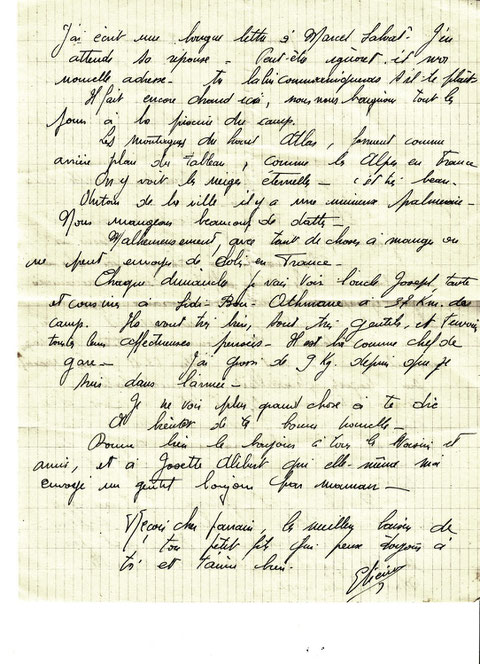 J'ai écrit une longue lettre à Marcel Salvat. J'en
attends sa réponse - Peut-être ignore-t-il mon
nouvelle adresse - tu la lui communiqueras s'il te plaît -
Il fait encore chaud ici, nous nous baignons tous les
jours à la piscine du camp.
Les montagnes du haut Atlas, forment comme
arrière plan du tableau, comme les Alpes en France
On y voit les neiges éternelles - c'est très beau.
Autour de la ville il y a une immense palmeraie -
Nous mangeons beaucoup de dattes
Malheureusement, avec tant de choses à manger on
ne peut envoyer de colis en France -
Chaque dimanche je vais voir l'oncle Joseph, tante
et cousines à Sidi-Bou-Othmane à Km. du
camp. Ils vont très bien, sont très gentils, et t'envoie
toutes leurs affectueuses pensées - Il est là comme chef de
gare - J'ai grossi de 9 Kg. depuis que je
suis dans l'armée -
Je ne vois plus grand chose à te dire
A bientôt de tes bonnes nouvelles -
Donne bien le bonjour à tous les voisins et
amis, et à Josette Alibert qui elle-même m'a
envoyé un gentil bonjour par maman -
Reçois cher parrain, les meilleurs baisers de
ton petit fils qui pense toujours à
toi et t'aime bien.